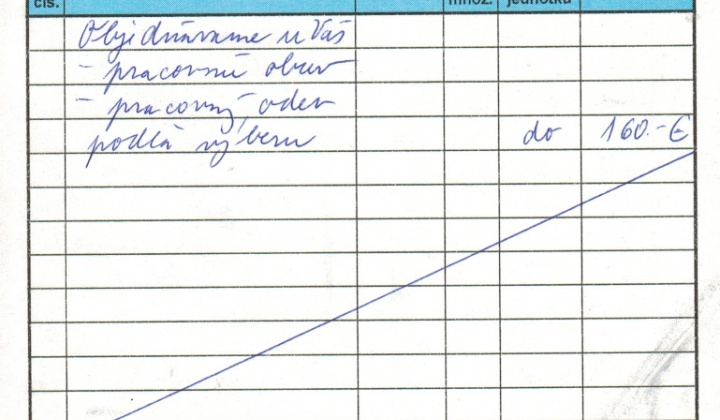 čís. množ. jednotku
Objednávame u Vás
- pracovnú obuv
- pracovný odev
podľa výberu do 160.- €